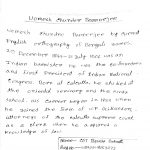 Womesh Chunder Bonnerjee
Womesh Chunder Bonnerjee by formal
English orthography of Bengali names
29 December 1844 – 21 July 1906 was an
Indian barrister. He was the co-founder
and first President of Indian National
Congress. Born at Calcutta, he studied at
the oriental seminary and the Hindu
School. His career began in 1862 when
he joined the firm of
attorneys of the Calcutta supreme court
as a clerk where he acquired a
knowledge of law